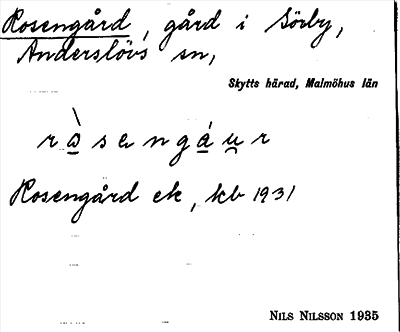 Rosengård, gård i Sörby,
Anderslövs sn,
Skytts härad, Malmöhus län
r ɷ̠̀ s e n g á̠ u̯ r
Rosengård ek, kb 1931
NILS NILSSON 1935